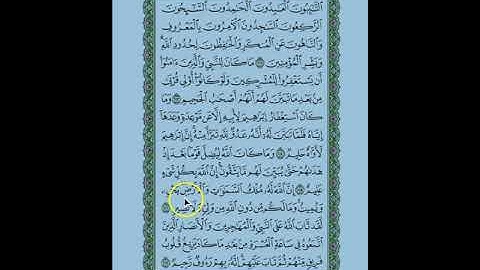 التَّائِبُونَ الْعَابِدُونَ الْحَامِدُونَ السَّائِحُونَ
الرَّاكِعُونَ السَّاجِدُونَ الْآمِرُونَ بِالْمَعْرُوفِ
وَالنَّاهُونَ عَنِ الْمُنكَرِ وَالْحَافِظُونَ لِحُدُودِ اللَّهِ
وَبَشِّرِ الْمُؤْمِنِينَ ١١٢ مَا كَانَ لِلنَّبِيِّ وَالَّذِينَ آمَنُوا
أَن يَسْتَغْفِرُوا لِلْمُشْرِكِينَ وَلَوْ كَانُوا أُولِي قُرْبَىٰ
مِن بَعْدِ مَا تَبَيَّنَ لَهُمْ أَنَّهُمْ أَصْحَابُ الْجَحِيمِ ١١٣ وَمَا
كَانَ اسْتِغْفَارُ إِبْرَاهِيمَ لِأَبِيهِ إِلَّا عَن مَّوْعِدَةٍ وَعَدَهَا
إِيَّاهُ فَلَمَّا تَبَيَّنَ لَهُ أَنَّهُ عَدُوٌّ لِّلَّهِ تَبَرَّأَ مِنْهُ إِنَّ إِبْرَاهِيمَ
لَأَوَّاهٌ حَلِيمٌ ١١٤ وَمَا كَانَ اللَّهُ لِيُضِلَّ قَوْمًا بَعْدَ إِذْ
هَدَاهُمْ حَتَّىٰ يُبَيِّنَ لَهُم مَّا يَتَّقُونَ إِنَّ اللَّهَ بِكُلِّ شَيْءٍ
عَلِيمٌ ١١٥ إِنَّ اللَّهَ لَهُ مُلْكُ السَّمَاوَاتِ وَالْأَرْضِ يُحْيِي
وَيُمِيتُ وَمَا لَكُم مِّن دُونِ اللَّهِ مِن وَلِيٍّ وَلَا نَصِيرٍ ١١٦
لَّقَد تَّابَ اللَّهُ عَلَى النَّبِيِّ وَالْمُهَاجِرِينَ وَالْأَنصَارِ الَّذِينَ
اتَّبَعُوهُ فِي سَاعَةِ الْعُسْرَةِ مِن بَعْدِ مَا كَادَ يَزِيغُ قُلُوبُ
فَرِيقٍ مِّنْهُمْ ثُمَّ تَابَ عَلَيْهِمْ إِنَّهُ بِهِمْ رَءُوفٌ رَّحِيمٌ ١١٧